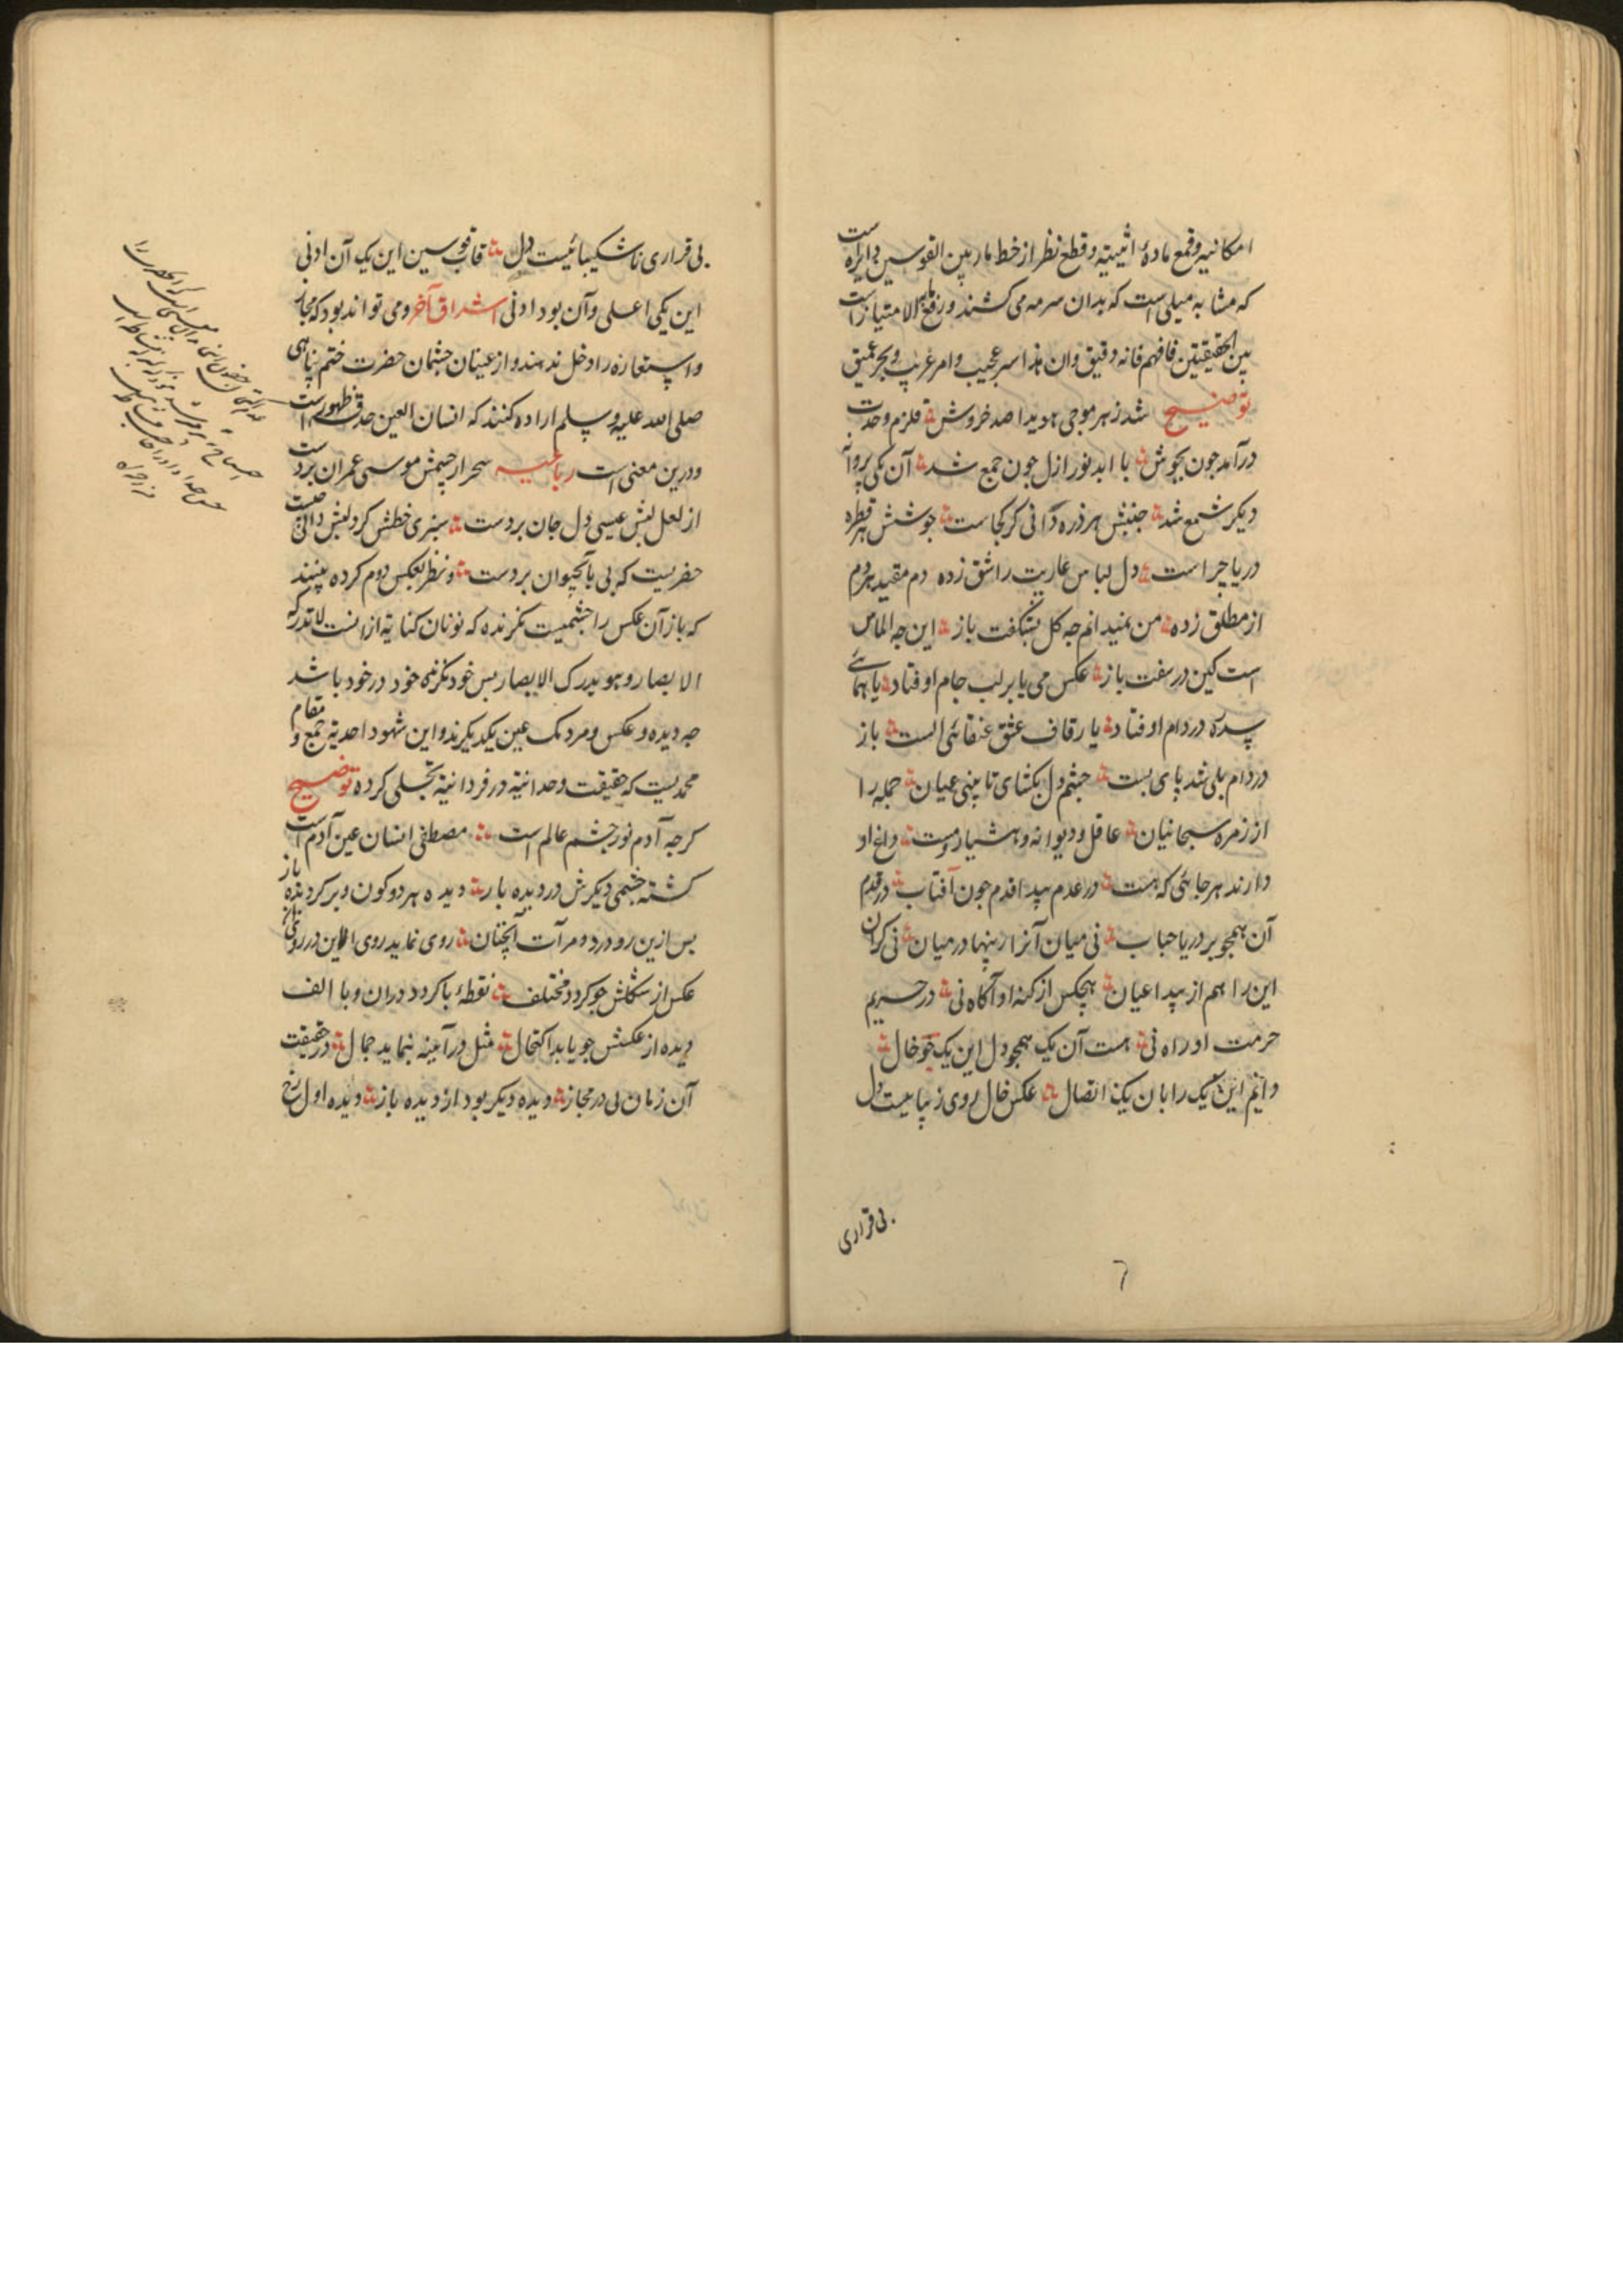 امکانیه و قمع مادهٔ اثنینیة و قطع نظر از خط مار بین القوسین دایره است
که مشابه میلی است که بدان سرمه می کشند و رفع مابه الامتیاز است
بین الحقیقتین فافهم فانه دقیق وان هذا سر عجیب وامر غریب وبحر عمیق
توضیح شد ز هر موجی هویدا صد خروش قلزم وحدت
درآمد جون بجوش با ابد نور ازل جون جمع شد آن یکی پروانه
دیکر شمع شد جنبش هر ذره دانی کز کجاست جوشش هر قطره
دریا جراست دل لباس عاریت را شق زده دم مقید هر دم
از مطلق زده من نمیدانم جه کل بشکفت باز این جه الماس
است کین در سفت باز عکس می یا بر لب جام اوفتاد یا همائے
سدره در دام اوفتاد یا ز قاف عشق عنقائی الست باز
در دام بلی شد پای بست جشم دل بکشای تا بینی عیان جمله را
از زمره سبحانیان عاقل و دیوانه و هشیار و مست داغ او
دارند هر جائی که هست در عدم پیدا قدم جون آفتاب در قدم
آن همجو بر دریا حباب نی میان آنرا ز پنها در میان نی کران
این را هم از پیدا عیان هیچکس از کنه او آکاه نی در حریم
حرمت او راه نی هست آن یک همجو دل این یک جو خال
دانم این یک را بان یک اتصال عکس خال روی زیبایست دل
بی قراری
٦
بی قراری ناشکیبائیست دل قاب قوسین این یک آن ادنی
این یکی اعلی وآن بود ادنی اشراق آخر ومی تواند بود که مجاز
واستعاره را دخل ندهند و از عینان جشمان حضرت ختم پناهی
صلی الله علیه وسلم اراده کنند که انسان العین حدقه ظهور است
ودرین معنی است رباعیه سحر از جشمش موسی عمران بردست
از لعل لبش عیسی دل جان بردست سبزی خطش کرد لبش دانی جیست
خضریست که پی بآب حیوان بردست ونظر بعکس دوم کرده بینند
که باز آن عکس را جشمیست نکرنده که نونان کنایة از انست لا تدرکه
الابصار وهو یدرک الابصار بس خود نکرندهٔ خود در خود باشد
جه دیده و عکس و مردمک عین یکدیکرند واین شهود احدیة جمع و مقام
محمدیست که حقیقت وحدانیة در فردانیة تجلی کرده توضیح
کرجه آدم نور جشم عالم است مصطفی انسان عین آدم است
کشته جشمی دیکرش در دیده باز دیده هر دو کون و بر کردیده باز
بس ازین رو در دو مرآت آنجنان روی نماید روی
عکس از شکلش جو کردد مختلف نقطهٔ با کردد دران و با الف
دیده از عکسش جو یابد اکتحال مثل در آینه بنماید جمال در حقیقت
آن زمان نی در مجاز دیده دیکر بود از دیده باز دیده اول رخ